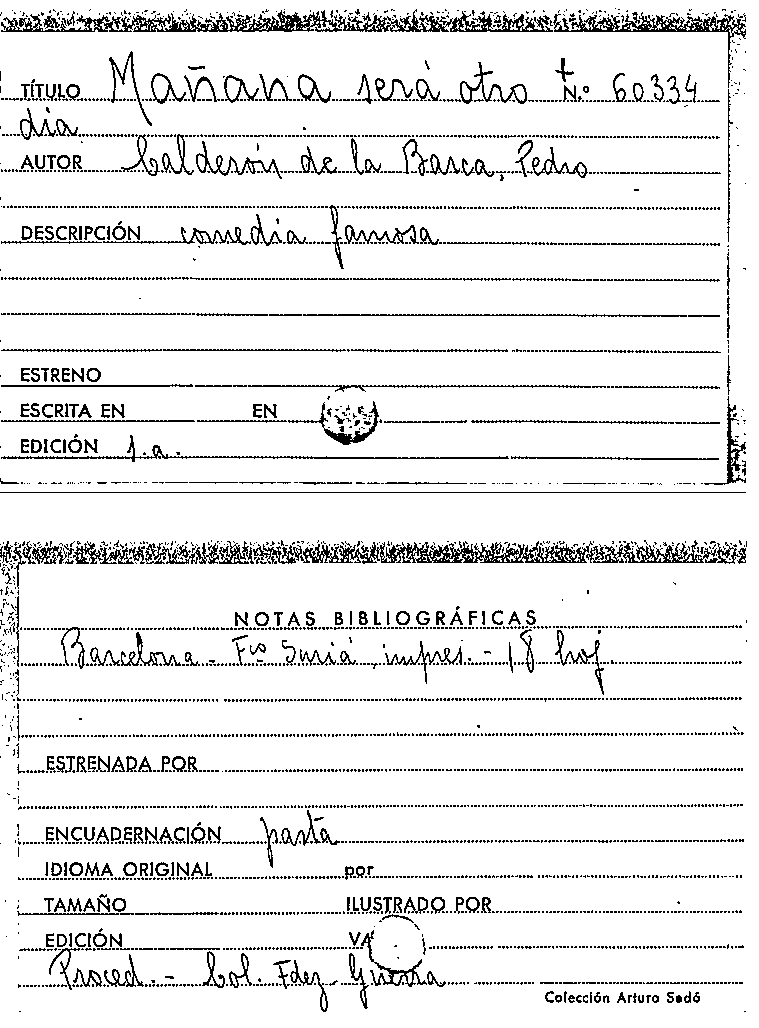 TÍTULO Mañana será otro N.º 60334
día
AUTOR Calderón de la Barca, Pedro
DESCRIPCIÓN comedia famosa
ESTRENO
ESCRITA EN EN
EDICIÓN s.a.
NOTAS BIBLIOGRÁFICAS
Barcelona - Fco Suriá, impres. - 18 hoj.
ESTRENADA POR
ENCUADERNACIÓN pasta
IDIOMA ORIGINAL por
TAMAÑO ILUSTRADO POR
EDICIÓN VA
Proced. - Col. Fdez-Guerra
Colección Arturo Sedó